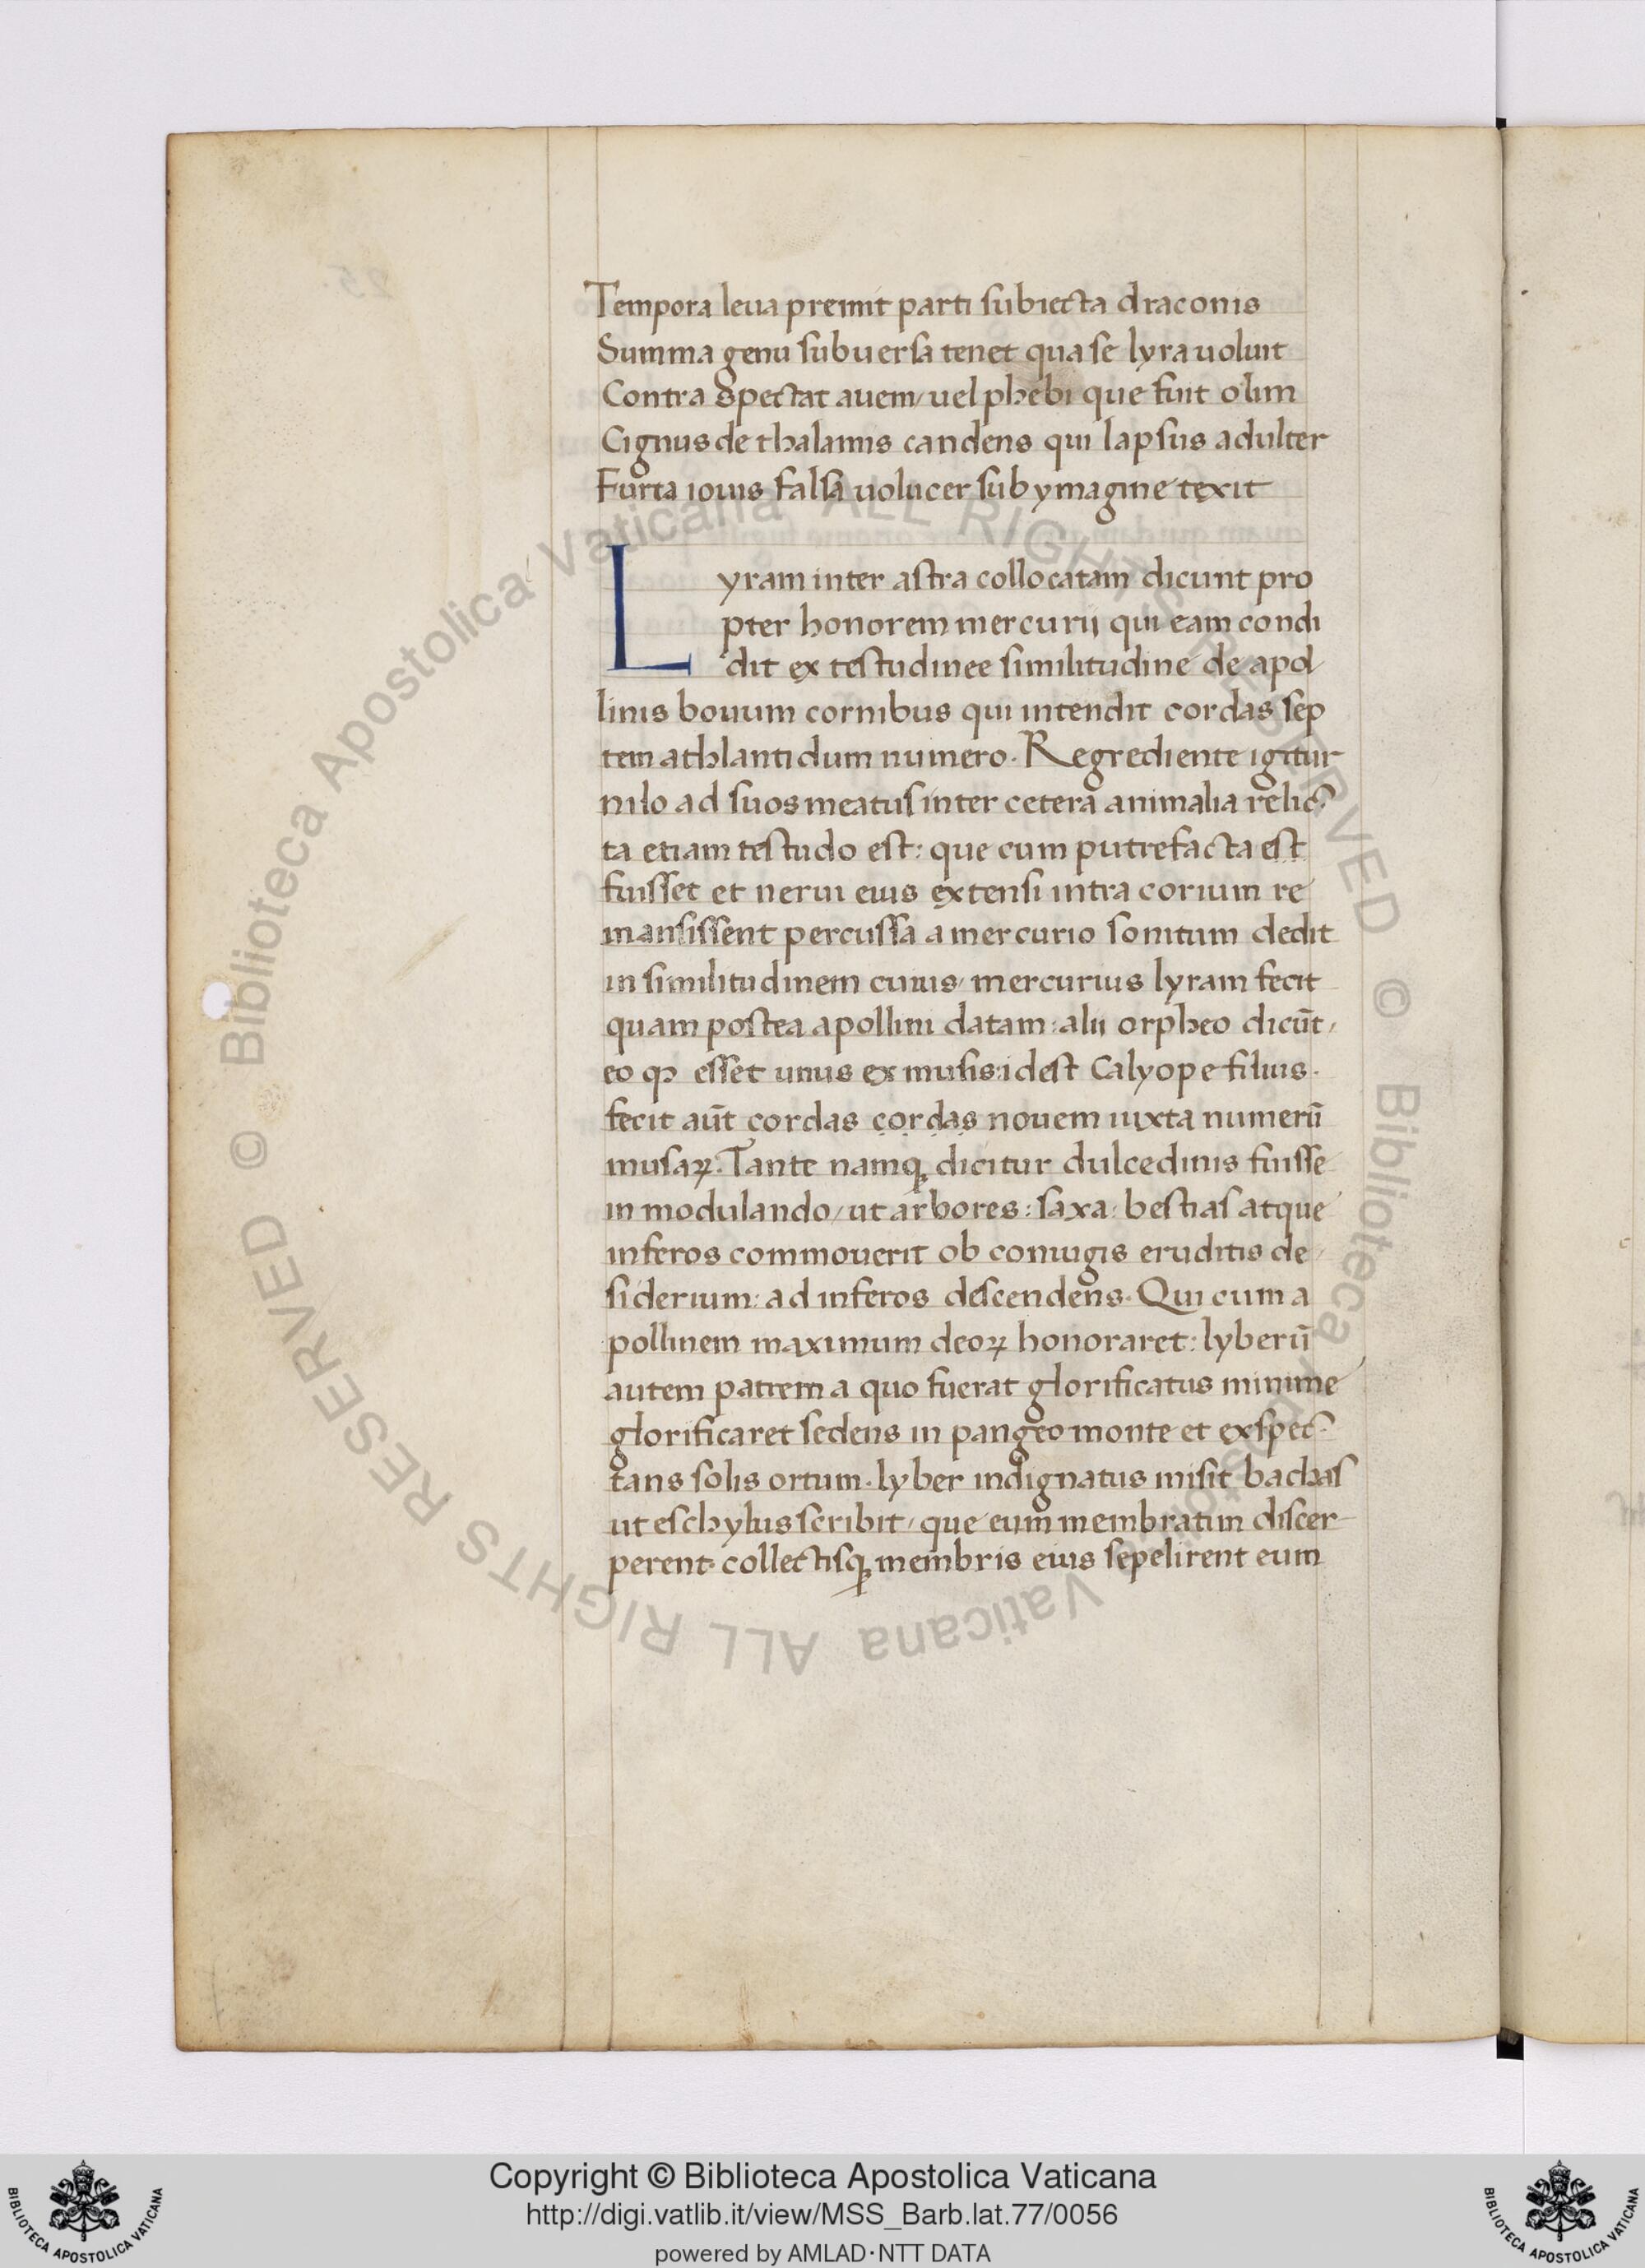 Tempora leua premit parti subiecta draconis
Summa genu subuersa tenet qua se lyra uoluit
Contra spectat auem, uel phebi que fuit olim
Cignus de thalamis candens qui lapsus adulter
Furta iouis falsa uolucer sub ymagine texit
Lyram inter astra collocatam dicunt pro
pter honorem mercurii qui eam condi
dit ex testudinee similitudine de apol
linis bouum cornibus qui intendit cordas sep
tem athlantidum numero. Regrediente igitur
nilo ad suos meatus inter cetera animalia relic
ta etiam testudo est: que cum putrefacta est
fuisset et nerui eius extensi intra corium re
mansissent percussa a mercurio sonitum dedit
in similitudinem cuius, mercurius lyram fecit
quam postea apollini datam: alii orpheo dicūt,
eo ꝙ esset unus ex musis: idest Calyope filius.
fecit aūt cordas cordas nouem iuxta numerū
musaꝝ. Tante namqꝫ dicitur dulcedinis fuisse
in modulando, ut arbores: saxa: bestias atque
inferos commouerit ob coniugis eruditis de
siderium: ad inferos descendens. Qui cum a
pollinem maximum deoꝝ honoraret: lyberū
autem patrem a quo fuerat glorificatus minime
glorificaret sedens in pangeo monte et exspec
tans solis ortum. lyber indignatus misit bachas
ut eschylus scribit, que eum membratim discer
perent collectisqꝫ membris eius sepelirent eum
© Biblioteca Apostolica Vaticana ALL RIGHTS RESERVED © Biblioteca Apostolica Vaticana ALL RIGHTS RESERVED
BIBLIOTECA APOSTOLICA VATICANA
Copyright © Biblioteca Apostolica Vaticana
http://digi.vatlib.it/view/MSS_Barb.lat.77/0056
powered by AMLAD·NTT DATA
BIBLIOTECA APOSTOLICA VATICANA